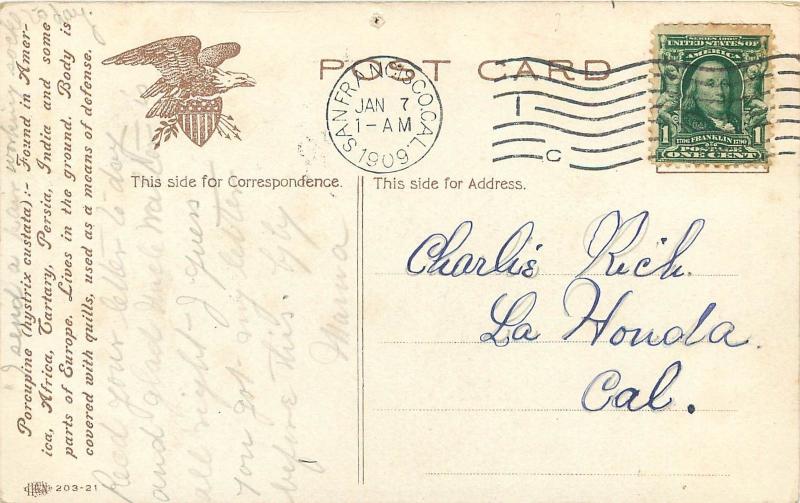 POST CARD
SAN FRANCISCO, CAL.
JAN 7
1-AM
1909
1
C
SERIES 1902
UNITED STATES OF
AMERICA
1706 FRANKLIN 1790
1 1
POSTAGE
ONE CENT
This side for Correspondence.
This side for Address.
Charlie Rich.
La Honda.
Cal.
Porcupine (hystrix custata):- Found in Amer-
ica, Africa, Tartary, Persia, India and some
parts of Europe. Lives in the ground. Body is
covered with quills, used as a means of defense.
203-21
Recd your letter to day
and glad the
all right I guess
you got my letter
before this. by by
Mama
I send a
to day.